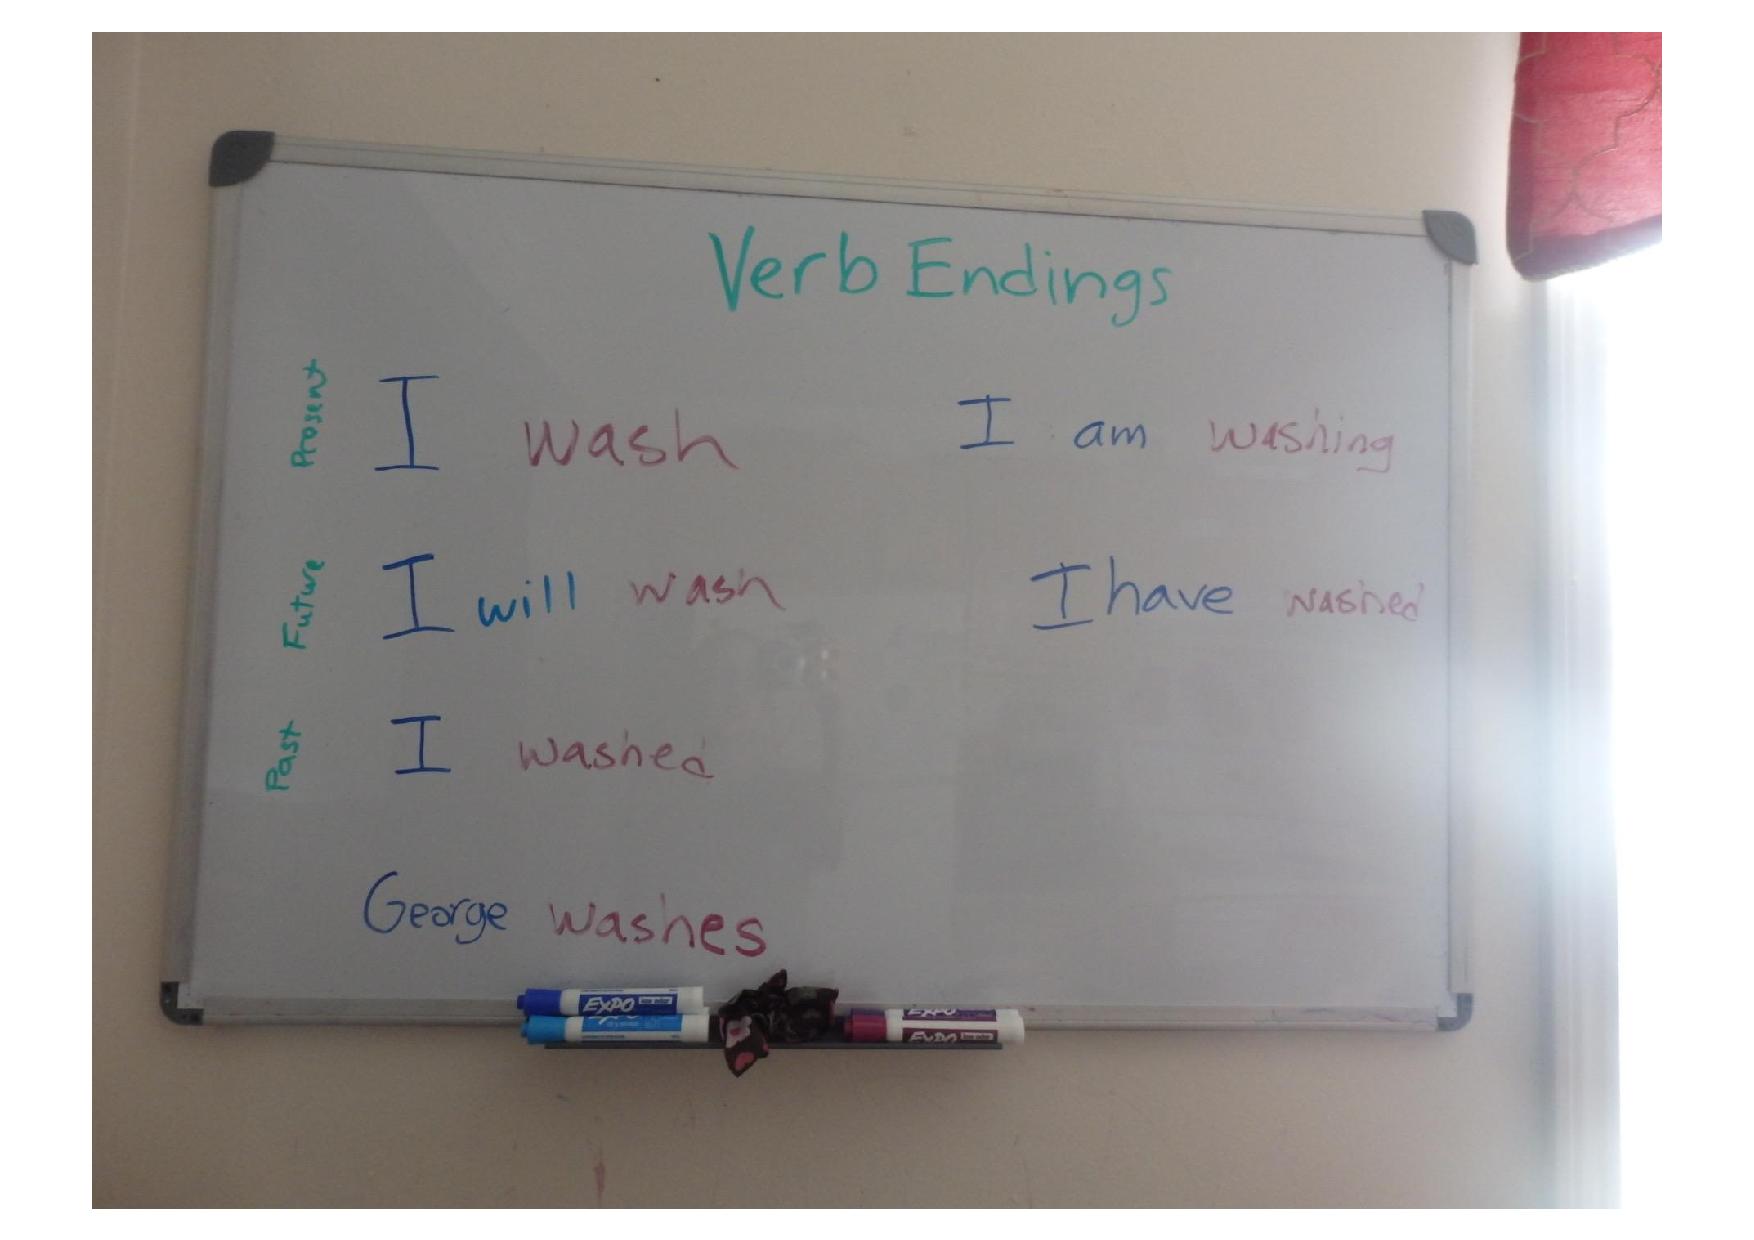 Verb Endings
Present I wash I am washing
Future I will wash I have washed
Past I washed
George washes
EXPO
EXPO
EXPO
EXPO